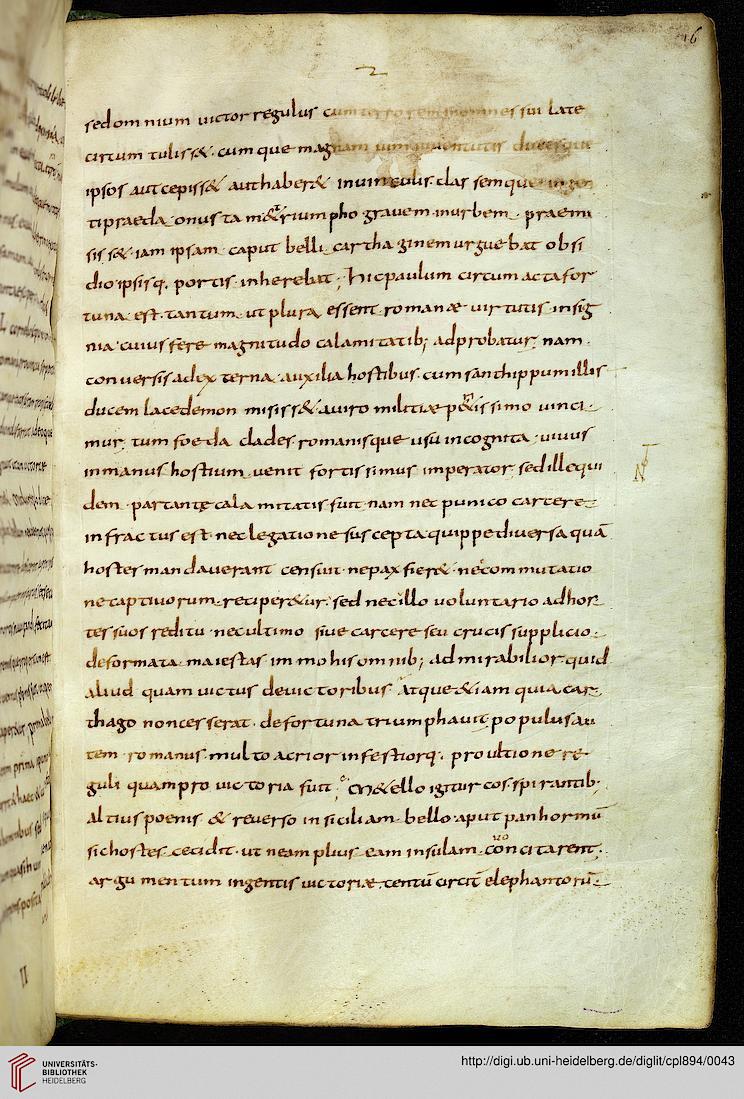 16
sedom nium uictor regulus cum terrorem nominis sui late
circum tuliss&. cumque magnam uim iuuentutis ducesque
ipsos aut cepiss& aut haber& inuinculis. clas semque ingen
ti praeda onusta m&rium pho grauem. inurbem. praemi
sis s& iam ipsam caput belli carthaginem urguebat obsi
dio ipsisq. portis inherebat; hic paulum circum acta for
tuna est. tantum ut plura essent romanæ uirtutis insig
nia. cuius fere magnitudo calamitatib; adprobatur. nam.
conuersis adexterna auxilia hostibus. cum santhippum illis
ducem lacedemon misiss&. auiro militiæ p&issimo uinci
mur. tum foeda clades. romanisque usu incognita. uiuus
inmanus hostium uenit fortissimus imperator. sed ille qui
dem par tante calamitatis fuit nam nec punico carcere
infractus est. nec legatione suscepta quippe diuersa quā
hostes mandauerant censuit. nepax fier&. necommutatio
necaptiuorum reciper&ur. sed nec illo uoluntario adhos
tes suos reditu. nec ultimo siue carcere seu crucis supplicio.
deformata maiestas immo his omnib; admirabilior. quid
aliud quam uictus deuictoribus Atque &iam quia car
thago noncesserat. de fortuna triumphauit. populus au
tem romanus multo acrior infestiorq. pro ultione re
guli quam pro uictoria fuit. M&ello igitur cos. spirantib;
altius poenis & reuerso in siciliam bello. aput panhormū
sic hostes cecidit. ut neam plius eam insulam concitarent.
argumentum ingentis uictoriæ. centū circit elephantorū.
UNIVERSITÄTS-
BIBLIOTHEK
HEIDELBERG
http://digi.ub.uni-heidelberg.de/diglit/cpl894/0043